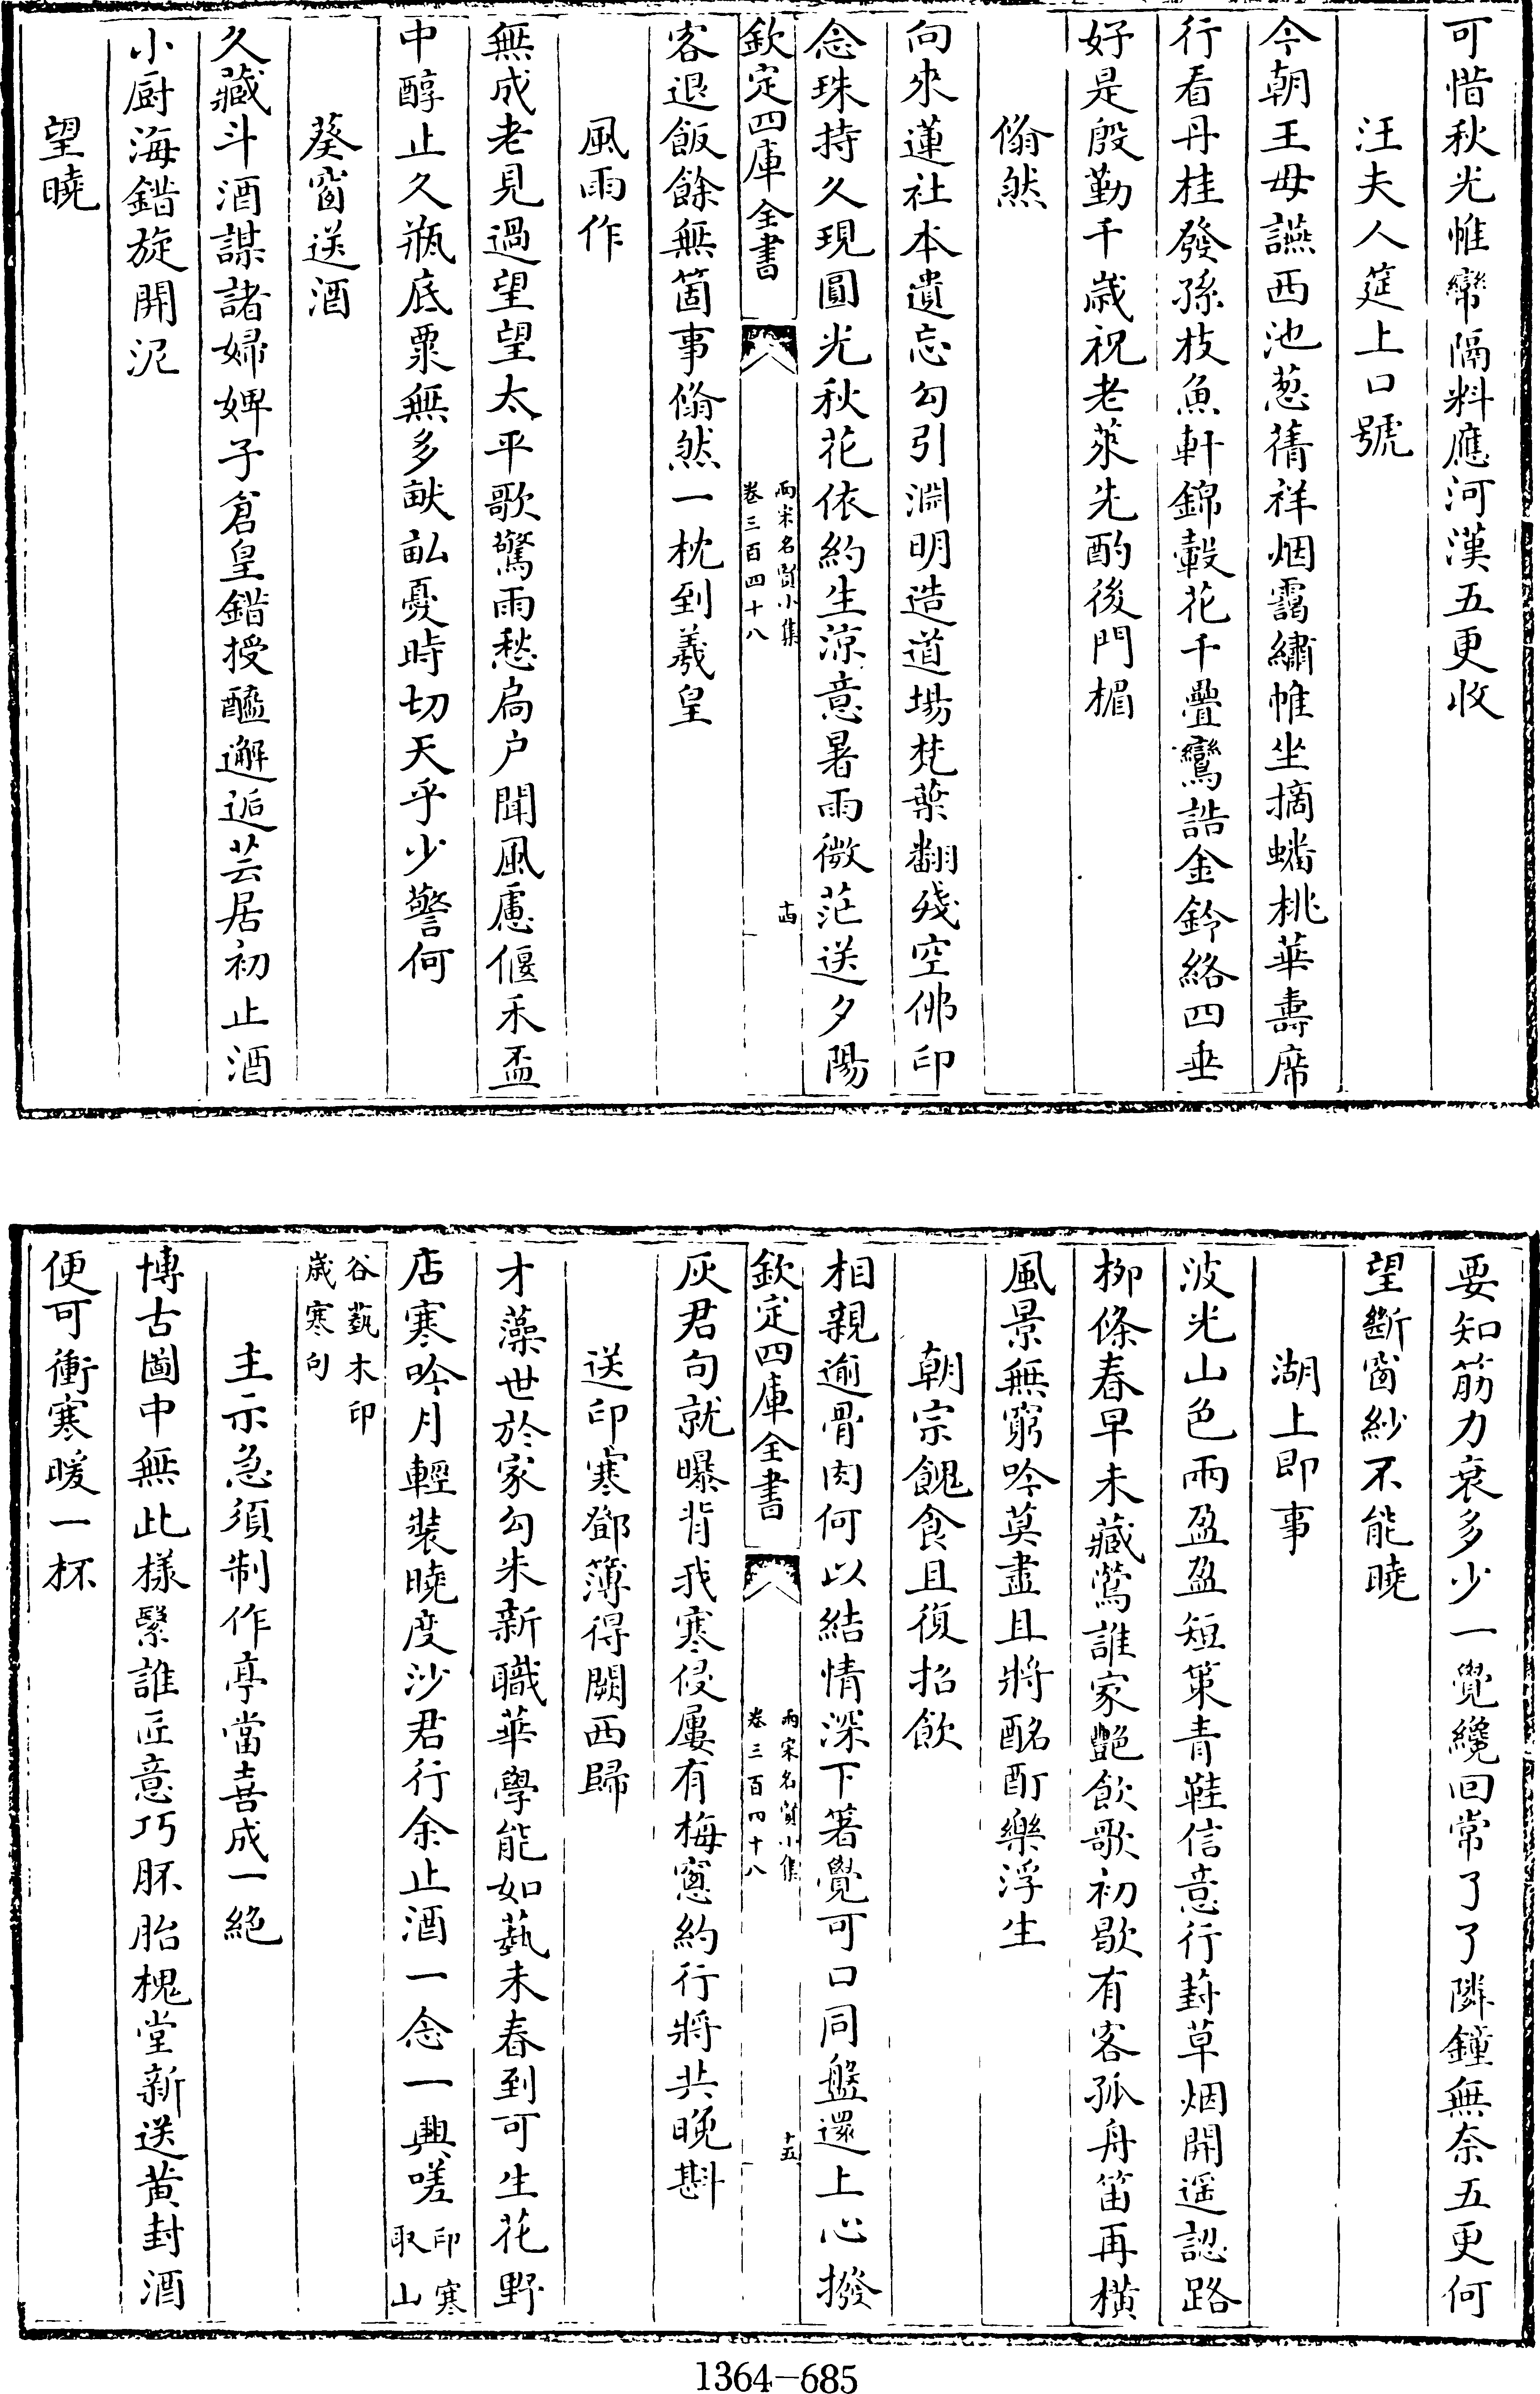 可惜秋光惟幣隔料應河漢五更收
汪夫人筵上口號
今朝王母讌西池葱蒨祥烟靄繡帷坐摘蟠桃華壽席
行看丹桂發孫枝魚軒錦轂花千疊鸞誥金鈴絡四垂
好是殷勤千歲祝老萊先酌後門楣
翛然
向來蓮社本遺忘勾引淵明造道場梵葉翻殘空佛印
念珠持久現圓光秋花依約生涼意暑雨微茫送夕陽
欽定四庫全書
兩宋名賢小集
卷三百四十八
十四
客退飯餘無箇事翛然一枕到羲皇
風雨作
無成老見過望望太平歌驚雨愁扃户聞風慮偃禾盃
中醇止久瓶底粟無多畎畝憂時切天乎少警何
葵窗送酒
久藏斗酒謀諸婦婢子倉皇錯授醯邂逅芸居初止酒
小厨海錯旋開泥
望曉
要知筋力衰多少一覺纔回常了了隣鐘無奈五更何
望斷窗紗不能曉
湖上即事
波光山色兩盈盈短策青鞋信意行葑草烟開遥認路
栁條春早未藏鶯誰家艷飲歌初歇有客孤舟笛再橫
風景無窮吟莫盡且將酩酊樂浮生
朝宗餽食且復招飲
相親逾骨肉何以結情深下箸覺可口同盤還上心撥
欽定四庫全書
兩宋名賢小集
卷三百四十八
十五
灰君句就曝背我寒侵屢有梅窻約行將共晚斟
送印寒鄧簿得闕西歸
才藻世於家勾朱新職華學能如蓺未春到可生花野
店寒吟月輕裝曉度沙君行余止酒一念一興嗟印寒
取山
谷蓺木印
歲寒句
主示急須制作亭當喜成一絶
博古圖中無此樣緊誰匠意巧胚胎槐堂新送黄封酒
便可衝寒暖一杯
1364-685